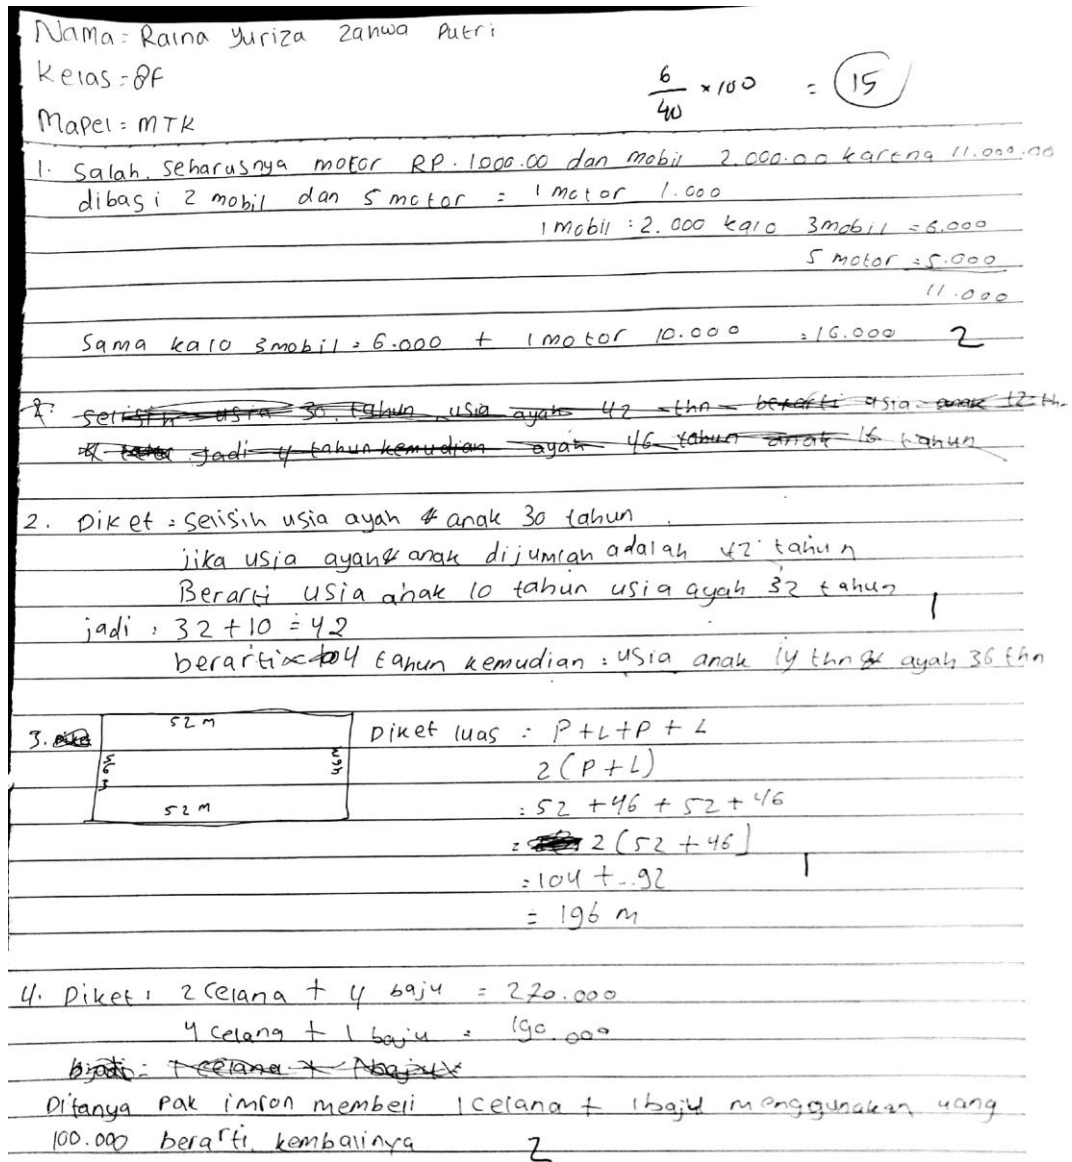 Nama = Raina Yuriza Zahwa Putri
Kelas = 8F
6/40 × 100 = 15
Mapel = MTK
1. Salah, seharusnya motor RP. 1000.00 dan mobil 2.000.00 karena 11.000.00
dibagi 2 mobil dan 5 motor = 1 motor 1.000
1 mobil : 2.000 kalo 3 mobil = 6.000
5 motor = 5.000
11.000
Sama kalo 3 mobil = 6.000 + 1 motor 10.000 = 16.000 2
selisih usia 30 tahun usia ayah 42 thn berarti usia anak 12 th
Jadi 4 tahun kemudian ayah 46 tahun anak 16 tahun
2. Diket : selisih usia ayah & anak 30 tahun
jika usia ayah & anak dijumlah adalah 42 tahun
Berarti usia anak 10 tahun usia ayah 32 tahun
1
jadi : 32 + 10 = 42
berarti 4 tahun kemudian : usia anak 14 thn & ayah 36 thn
3.
52 m
46 m
46 m
52 m
Diket luas : P + L + P + L
2 (P + L)
: 52 + 46 + 52 + 46
= 2 (52 + 46)
1
: 104 + .. 92
= 196 m
4. Diket : 2 celana + 4 baju = 220.000
4 celana + 1 baju = 190.000
1 celana + 1 baju
Ditanya Pak imron membeli 1 celana + 1 baju menggunakan uang
100.000 berarti kembalinya 2